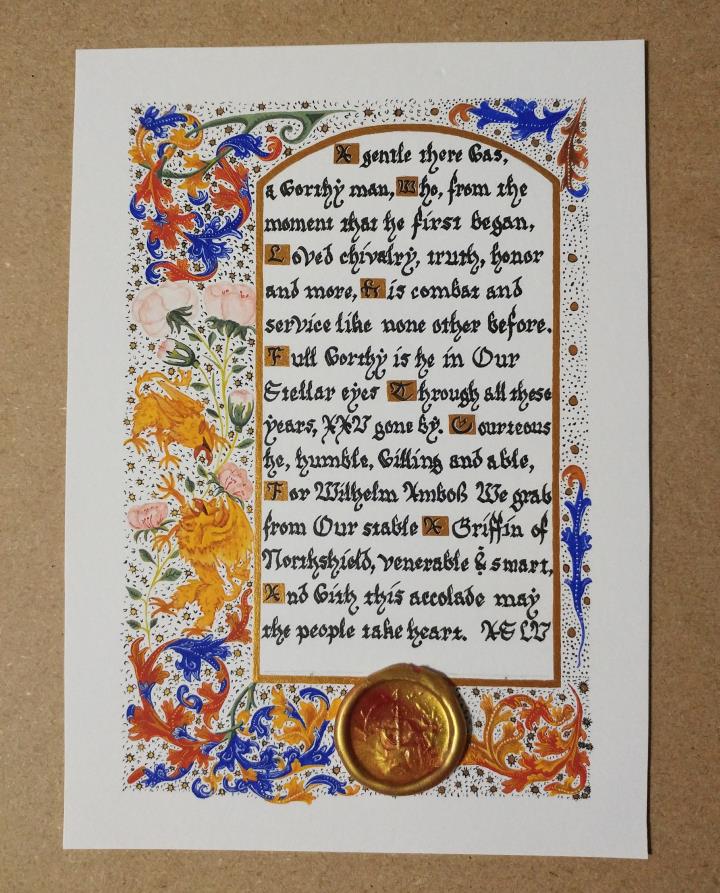 A gentle there was,
a worthy man, Who, from the
moment that he first began,
Loved chivalry, truth, honor
and more, His combat and
service like none other before.
Full worthy is he in Our
Stellar eyes Through all these
years, XXV gone by. Courteous
he, humble, willing and able,
For Wilhelm Amboß We grab
from Our stable A Griffin of
Northshield, venerable & smart,
And with this accolade may
the people take heart. AS LV